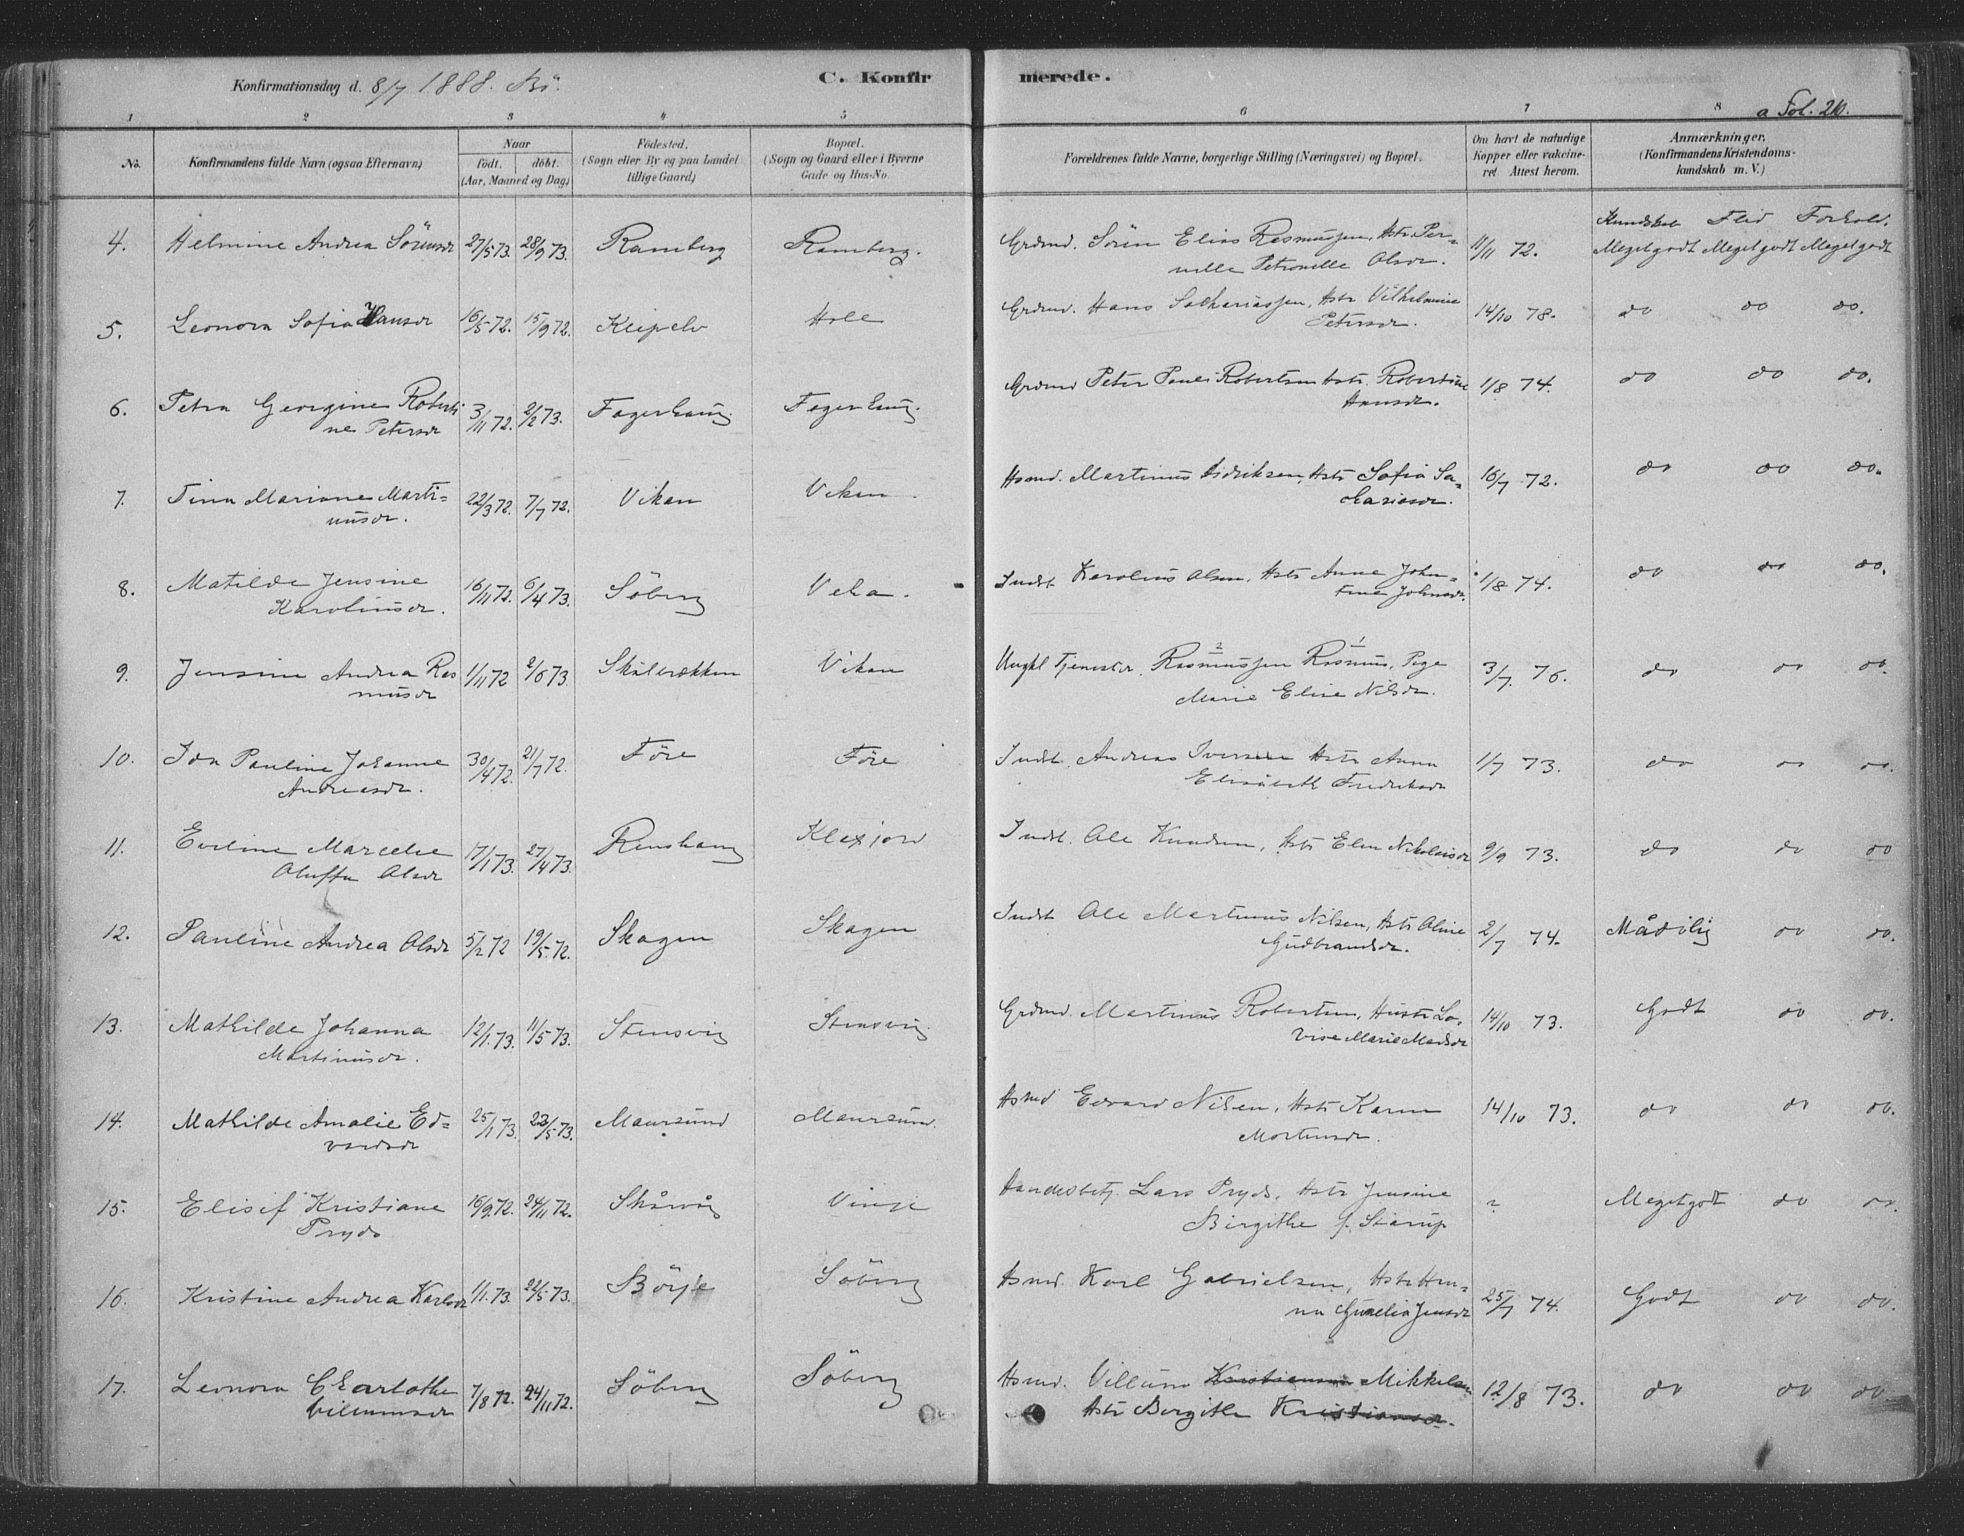 Konfirmationsdag d. 8/7 1888. Bö. C. Konfir merede.
a Fol. 20.
1 2 3 4 5 6 7 8
No. Konfirmandens fulde Navn (ogsaa Efternavn) Naar født, døbt. (Aar, Maaned og Dag) Fødested. (Sogn eller By og paa Landet tillige Gaard) Bopæl. (Sogn og Gaard eller i Byerne Gade og Hus-No. Forældrenes fulde Navne, borgerlige Stilling (Næringsvei) og Bopæl. Om havt de naturlige Kopper eller vakcineret. Attest herom. Anmærkninger. (Konfirmandens Kristendomskundskab m. V.)
Kundskab Flid Forhold.
4. Helmine Andrea Sörensdr 27/5 73. 28/9 73. Ramberg Ramberg. Grdmd. Sören Elias Rasmussen, Hstr Per-
nelle Petronelle Olsdr. 11/11 72. Megetgodt Megetgodt Megetgodt
5. Leonora Sofia Hansdr 16/5 72. 15/9 72. Kleipelv Holl Grdmd. Hans Sakariassen, Hstr Vilhelmine
Petersdr. 14/10 78. do do do.
6. Petra Georgine Roberti
ne Petersdr 3/11 72. 2/2 73. Fagerhaug. Fagerhaug. Grdmd Peter Paul Robertsen Hstr. Robertine
Hansdr. 1/8 74. do do do.
7. Tina Mariane Marti-
nusdr. 22/3 72. 7/7 72. Vikan Vikan. Hsmd. Martinus Didriksen, Hstr Sofia Sa-
kariasdr. 16/7 72. do do do.
8. Matilde Jensine
Karoliusdr. 16/11 72. 6/4 73. Söberg Veka. Indst Karolius Olsen, Hstr Anne John-
tine Johnsdr. 1/8 74. do do do.
9. Jensine Andrea Ras
musdr 1/11 72 2/6 73. Skälbrækken Vikan Ungkl Tjenestedr. Rasmussen Rasmus, Pige
Marie Elise Nilsdr. 3/7. 76. do do do.
10. Ida Pauline Johanne
Andreasdr. 30/4 72. 21/7 72. Före Före Indst. Andreas Iversen Hstr Anna
Elisabeth Fredriksdr 1/7 73. do do do.
11. Eveline Marcelie
Oluffa Olsdr 17/1 73. 27/4 73. Renshaug Klaxjord Indst. Ole Knudsen, Hstr Elen Nikolaisdr 9/9 73. do do do
12. Pauline Andrea Olsdr 5/2 72 19/5 72. Skagen Skagen Indst Ole Martinus Nilsen, Hstr Oline
Gudbrandsdr. 2/7 74. Mådelig do do.
13. Mathilde Johanna
Martinusdr. 12/1. 73. 11/5 73. Stensvig Stensvig. Grdmd. Martinus Robertsen, Hustr Lo-
vise Marie Madsdr 14/10 73. Godt do do.
14. Mathilde Amalie Ed-
vardsdr 25/1 73. 22/5 73. Maursund Maursund. Hsmd Edvard Nilsen, Hstr Karen
Mortensdr. 14/10 73. do do do.
15. Elisif Kristiane
Pryds 16/9 72. 24/11 72. Skårvåg Vinje Handelsbetj. Lars Pryds, Hstr Jensine
Birgithe f. Starup ? Megetgodt do do.
16. Kristine Andrea Karlsdr 1/1. 73. 22/5 73. Söberg Hsmd. Karl Gabrielsen, Hstr Han-
na Jensdr 25/7 74. Godt do do.
17. Leonora Charlothe
Villumsdr 7/8 72. 24/11 72. Söberg Söberg Hsmd. Villum Kristiansen Mikkelsen
Hstr Bergithe Kristiansdr. 12/8 73. do do do